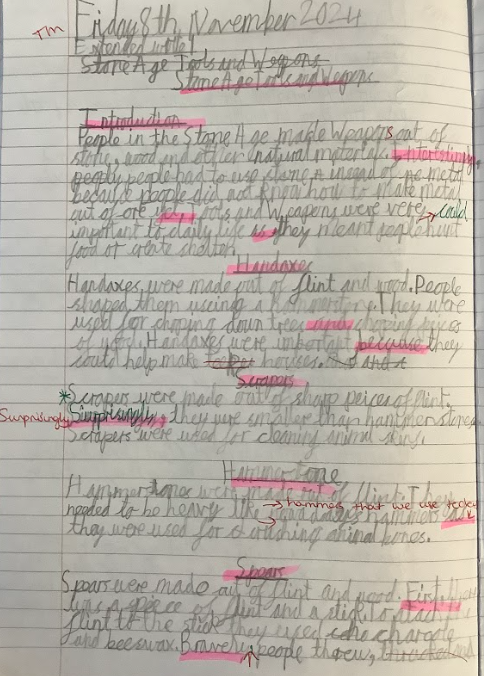 TM Friday 8th November 2024
Extended write!
Stone Age Tools and Weapons
Stone Age Tools and Weapons
Introduction
People in the Stone Age made Weapons out of
stone, wood and other natural material. Interestingly,
people people had to use stone instead of metal
because people did not know how to make metal
out of ore. tools and Weapons were very could
important to daily life as they meant people hunt
food or create shelter.
Handaxes
Handaxes, were made out of flint and wood. People
shaped them useing a hammerstone. They were
used for choping down trees and choping pieces
of wood. Handaxes were important because they
could help make houses.
Scrapers
*Scrapers were made out of sharp peices of flint.
Surprisingly Surprisingly, they were smaller than hammer stones.
Scrapers were used for cleaning animal skins.
Hammertone
Hammertones were made out of flint. They
needed to be heavy like hammers that we use today
they were used for crushing animal bones.
Spears
Spears were made out of flint and wood. First,
was a peice of flint and a stick. To attach
flint to the stick they used
and beeswax. Bravely, people threw,